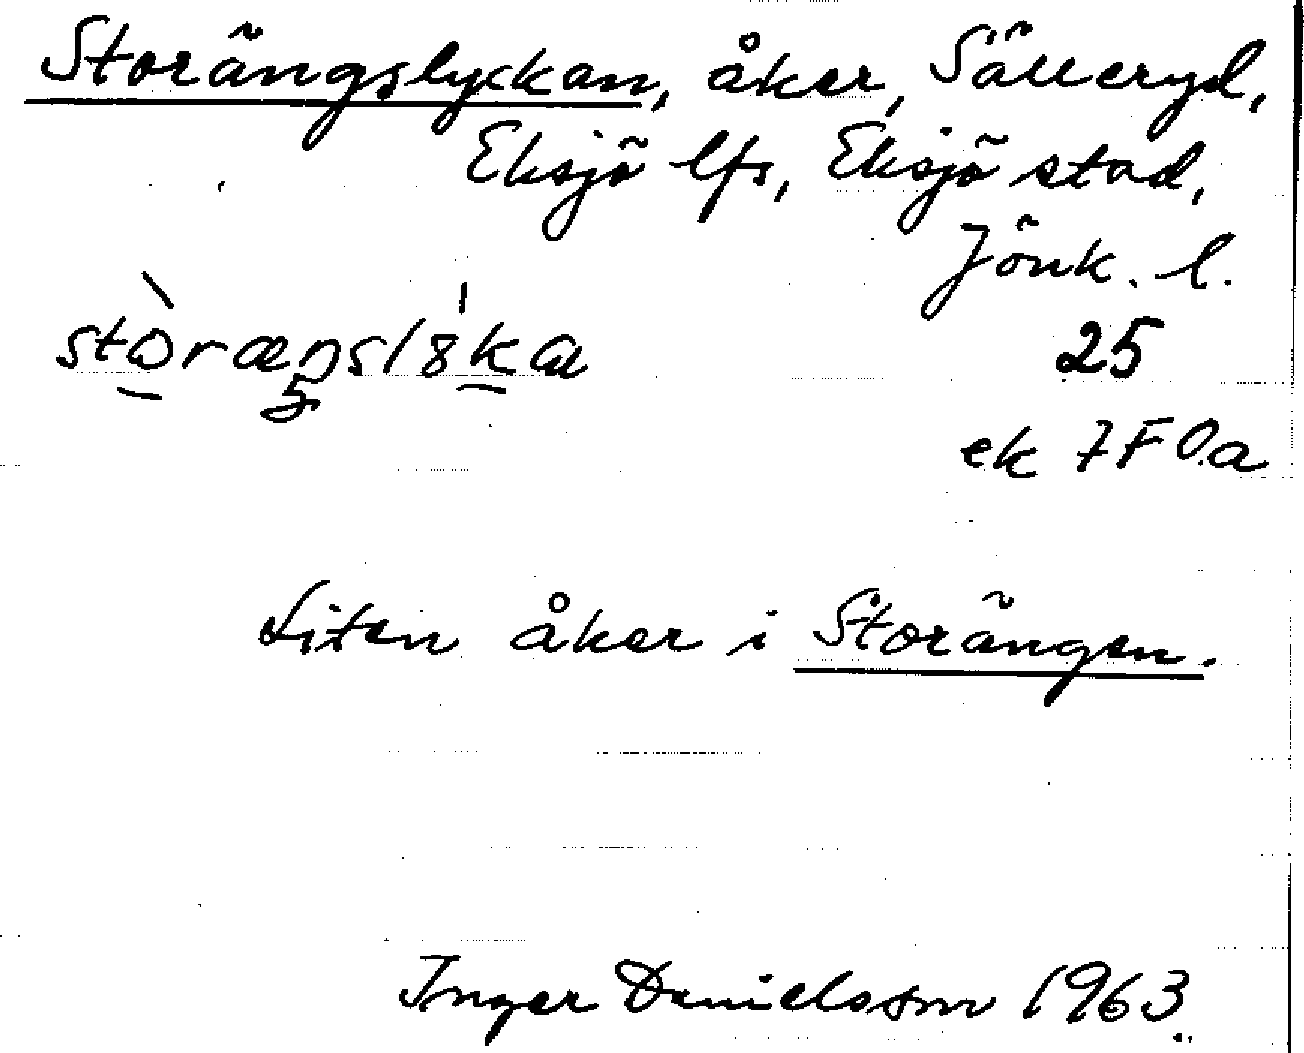 Storängslyckan, åker, Sälleryd,
Eksjö lfs, Eksjö stad,
Jönk. l.
25
ek 7F 0a
Liten åker i Storängen.
Inger Danielsson 1963